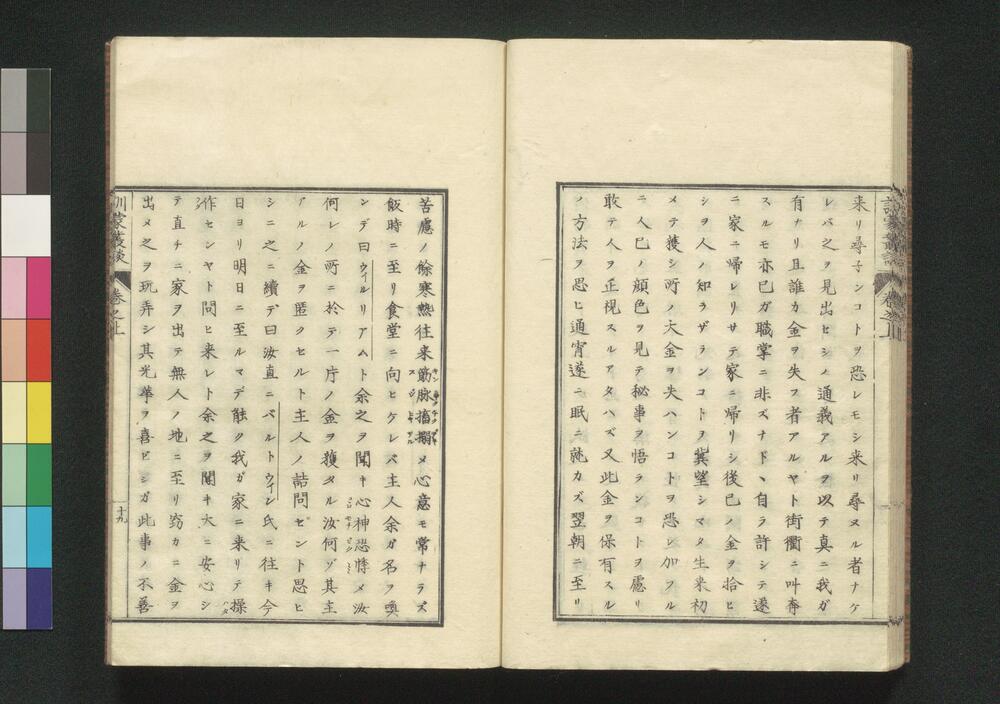 来リ尋子ンコトヲ恐レモシ来リ尋ヌル者ナケ
レバ之ヲ見出セシノ通義アルヲ以テ真ニ我ガ
有ナリ且誰カ金ヲ失フ者アルヤト街衢ニ叫奔
スルモ亦已ガ職掌ニ非ズナドヽ自ラ許シテ遂
ニ家ニ帰レリサテ家ニ帰リシ後已ノ金ヲ拾ヒ
シヲ人ノ知ラザランコトヲ冀望シマタ生来初
メテ獲シ所ノ大金ヲ失ハンコトヲ恐レ加フル
ニ人已ノ顔色ヲ見テ秘事ヲ悟ランコトヲ慮リ
敢テ人ヲ正視スルアタハズ又此金ヲ保有スル
ノ方法ヲ思ヒ通宵遂ニ眠ニ就カズ翌朝ニ至リ
苦慮ノ余寒熱往来筋脉搐搦メ心意モ常ナラズ
飯時ニ至リ食堂ニ向ヒケレバ主人余ガ名ヲ喚
ンデ曰ウィルリアムト余之ヲ聞キ心神恐悸メ汝
何レノ所ニ於テ一片ノ金ヲ獲タル汝何ゾ其主
アルノ金ヲ匿クセルト主人ノ詰問セント思ヒ
シニ之ニ續デ曰汝直ニバルトウィン氏ニ往キ今
日ヨリ明日ニ至ルマデ能ク我ガ家ニ来リテ操
作センヤト問ヒ来レト余之ヲ聞キ大ニ安心シ
テ直チニ家ヲ出テ無人ノ地ニ至リ窃カニ金ヲ
出メ之ヲ玩弄シ其光華ヲ喜ビシガ此事ノ不善
訓蒙叢談
卷之上
十九